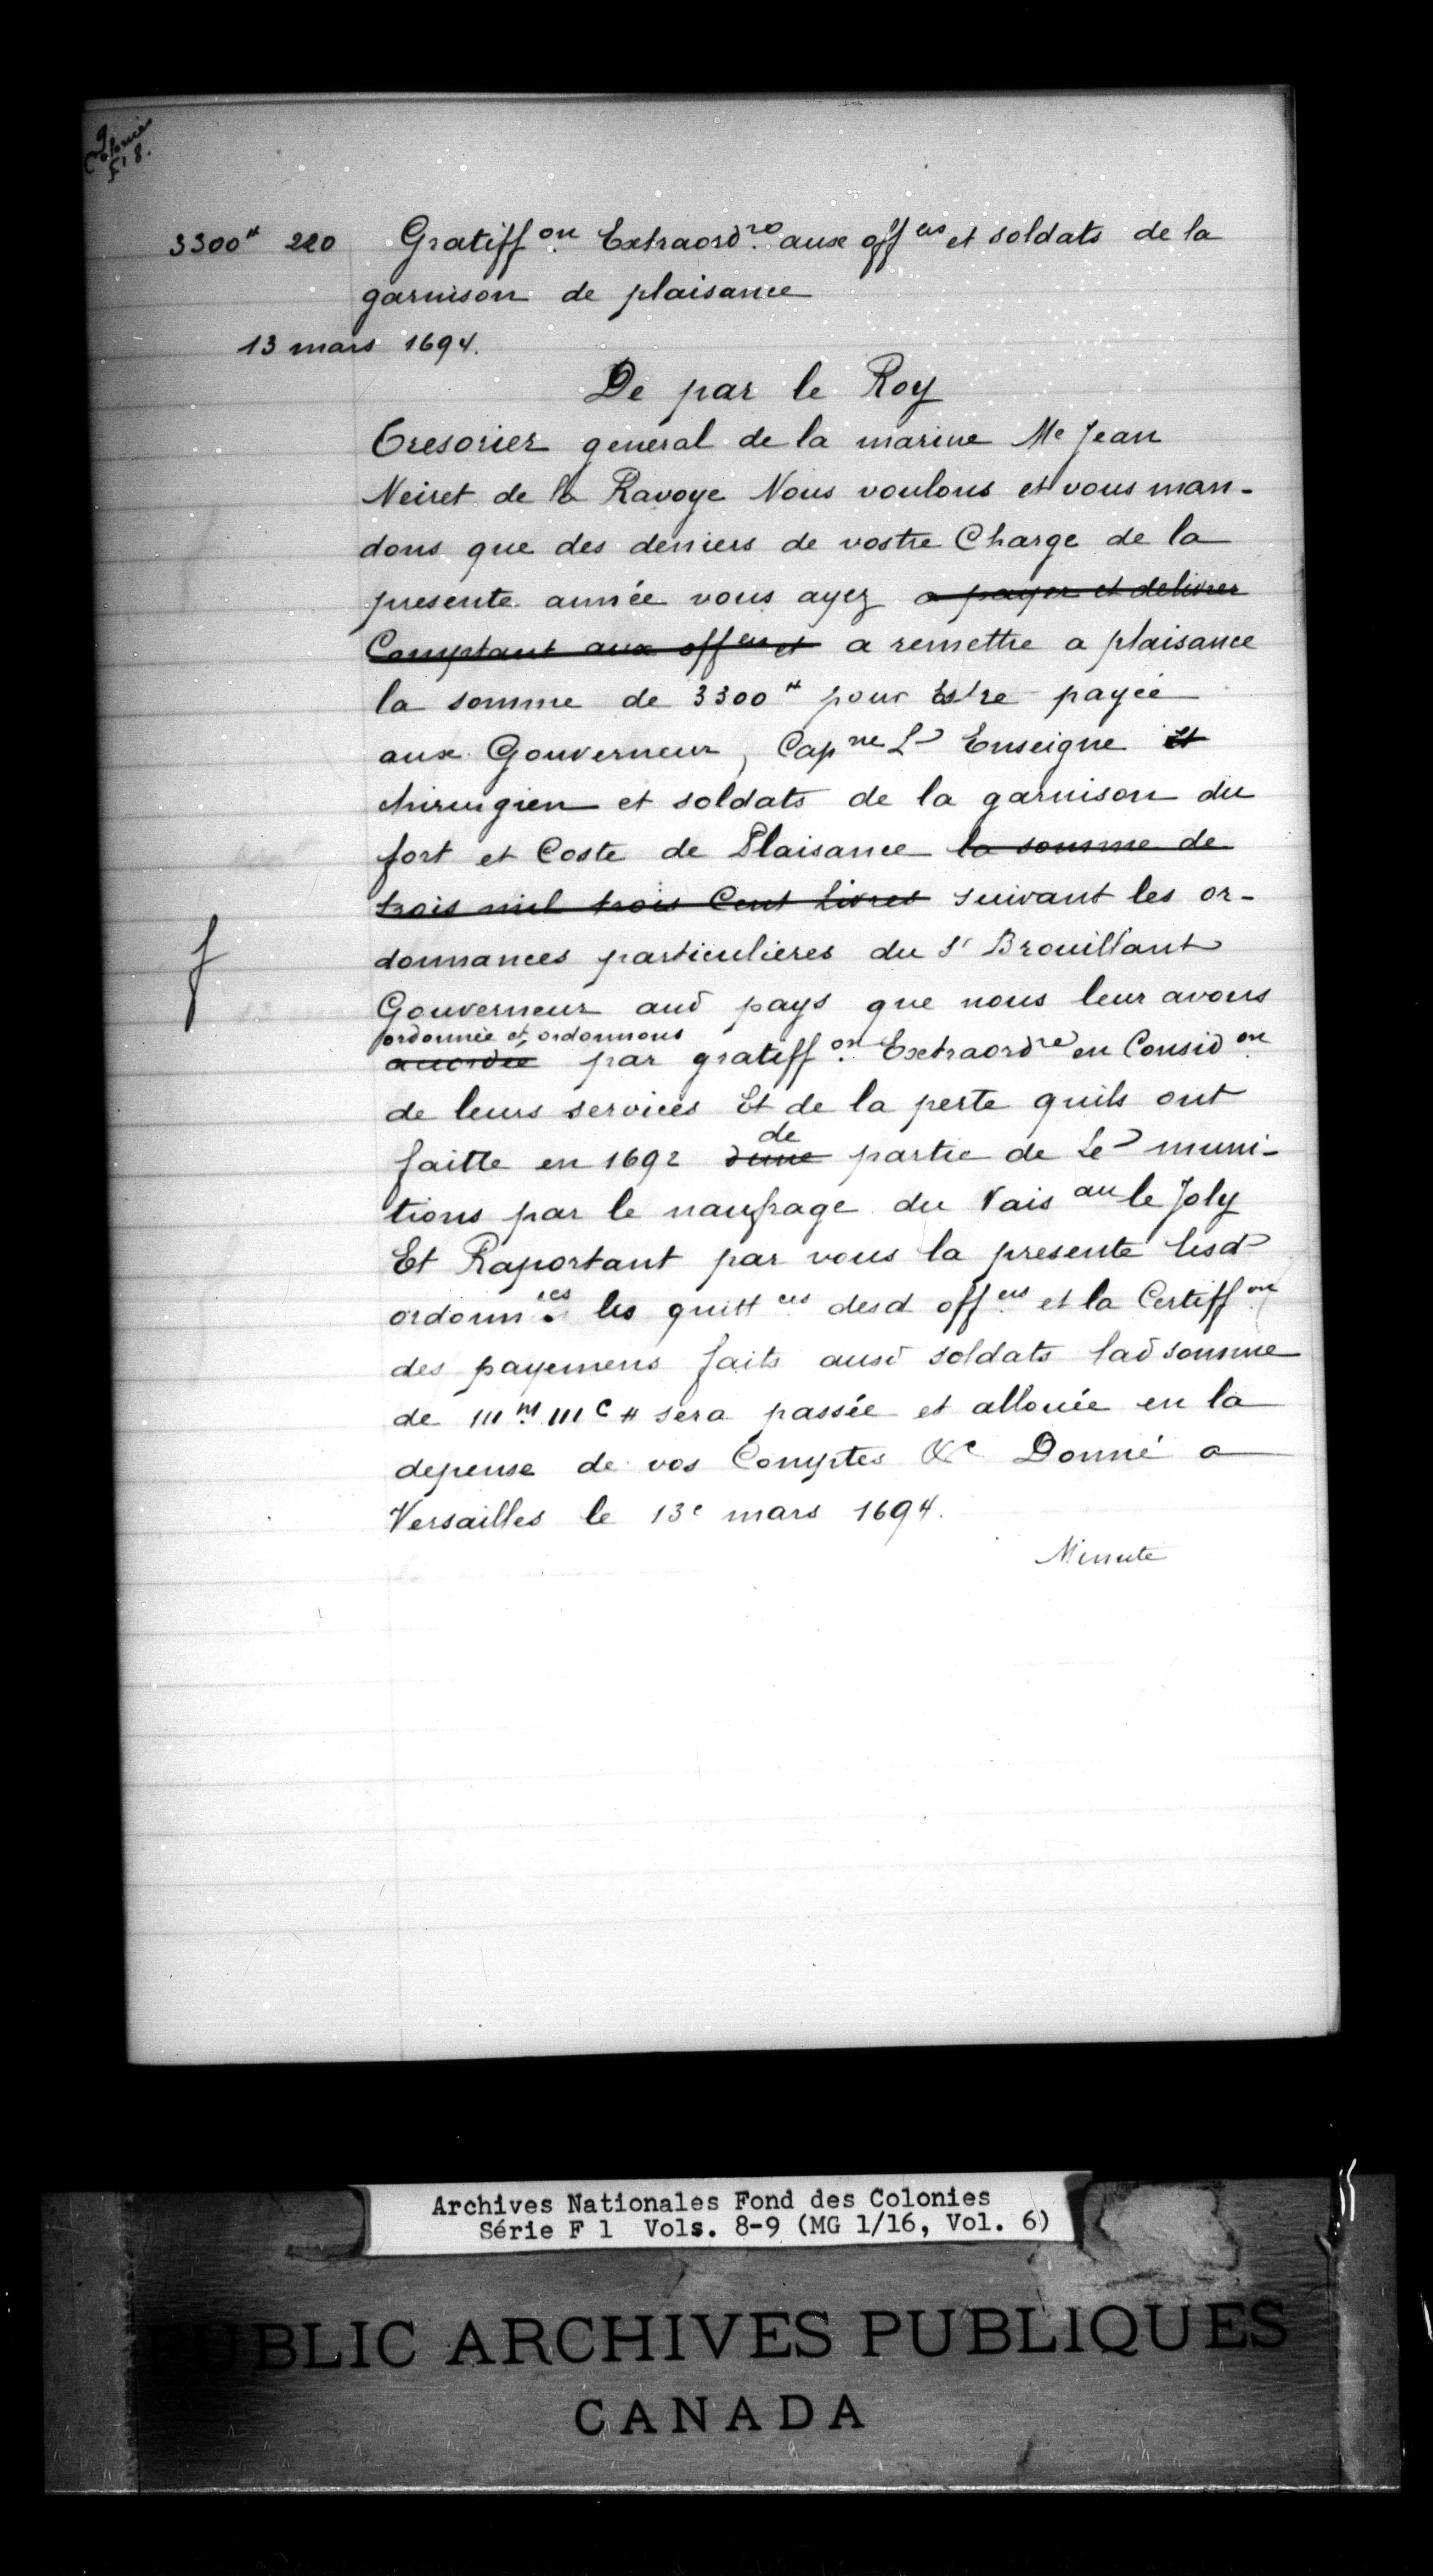 9
Colonies
F1 8.
3300# 220 Gratiff on Extraord re aux off ers et soldats de la
garnison de plaisance
13 mars 1694.
De par le Roy
Tresorier general de la marine Me Jean
Neiret de la Ravoye Nous voulons et vous man-
dons que des deniers de vostre Charge de la
presente année vous ayez a payer et delivrer
Comptant aux off ers et a remettre a plaisance
la somme de 3300# pour Estre payée
aux Gouverneur, Cap ne Lt Enseigne Et
chirurgien et soldats de la garnison du
fort et Coste de Plaisance la somme de
trois mil trois Cent livres suivant les or-
donnances particulieres du Sr Brouillant
Gouverneur aud pays que nous leur avons
ordonnée et ordonnons
accordée par gratiff on Extraord re en Consid on
de leurs services Et de la perte quils ont
de
faitte en 1692 dune partie de Le muni-
tions par le naufrage du Vais au le Joly
Et Raportant par vous la presente lesd
ordonn ces les quitt ces desd off ers et la Certiff on
des payemens faits ausd soldats lad somme
de III M III C # sera passée et allouée en la
depense de vos Comptes &c Donné a
Versailles le 13e mars 1694.
Minute
Archives Nationales Fond des Colonies
Série F 1 Vols. 8-9 (MG 1/16, Vol. 6)
PUBLIC ARCHIVES PUBLIQUES
CANADA